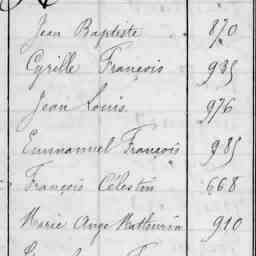 Jean Baptiste 870
Cyrille François 935
Jean Louis 976
Emmanuel François 985
François Célestin 668
Marie Ange Mathurin 910